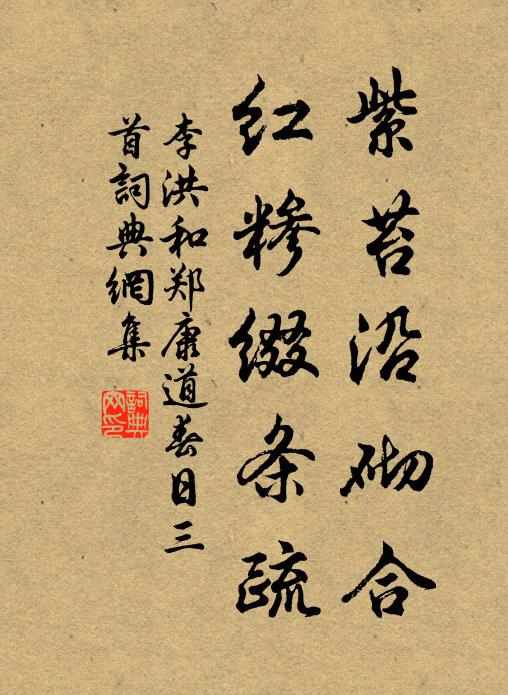 紫苔沿砌合
红糁缀条疏
李洪和郑康道春日三
首詞典網集
詞典
网印